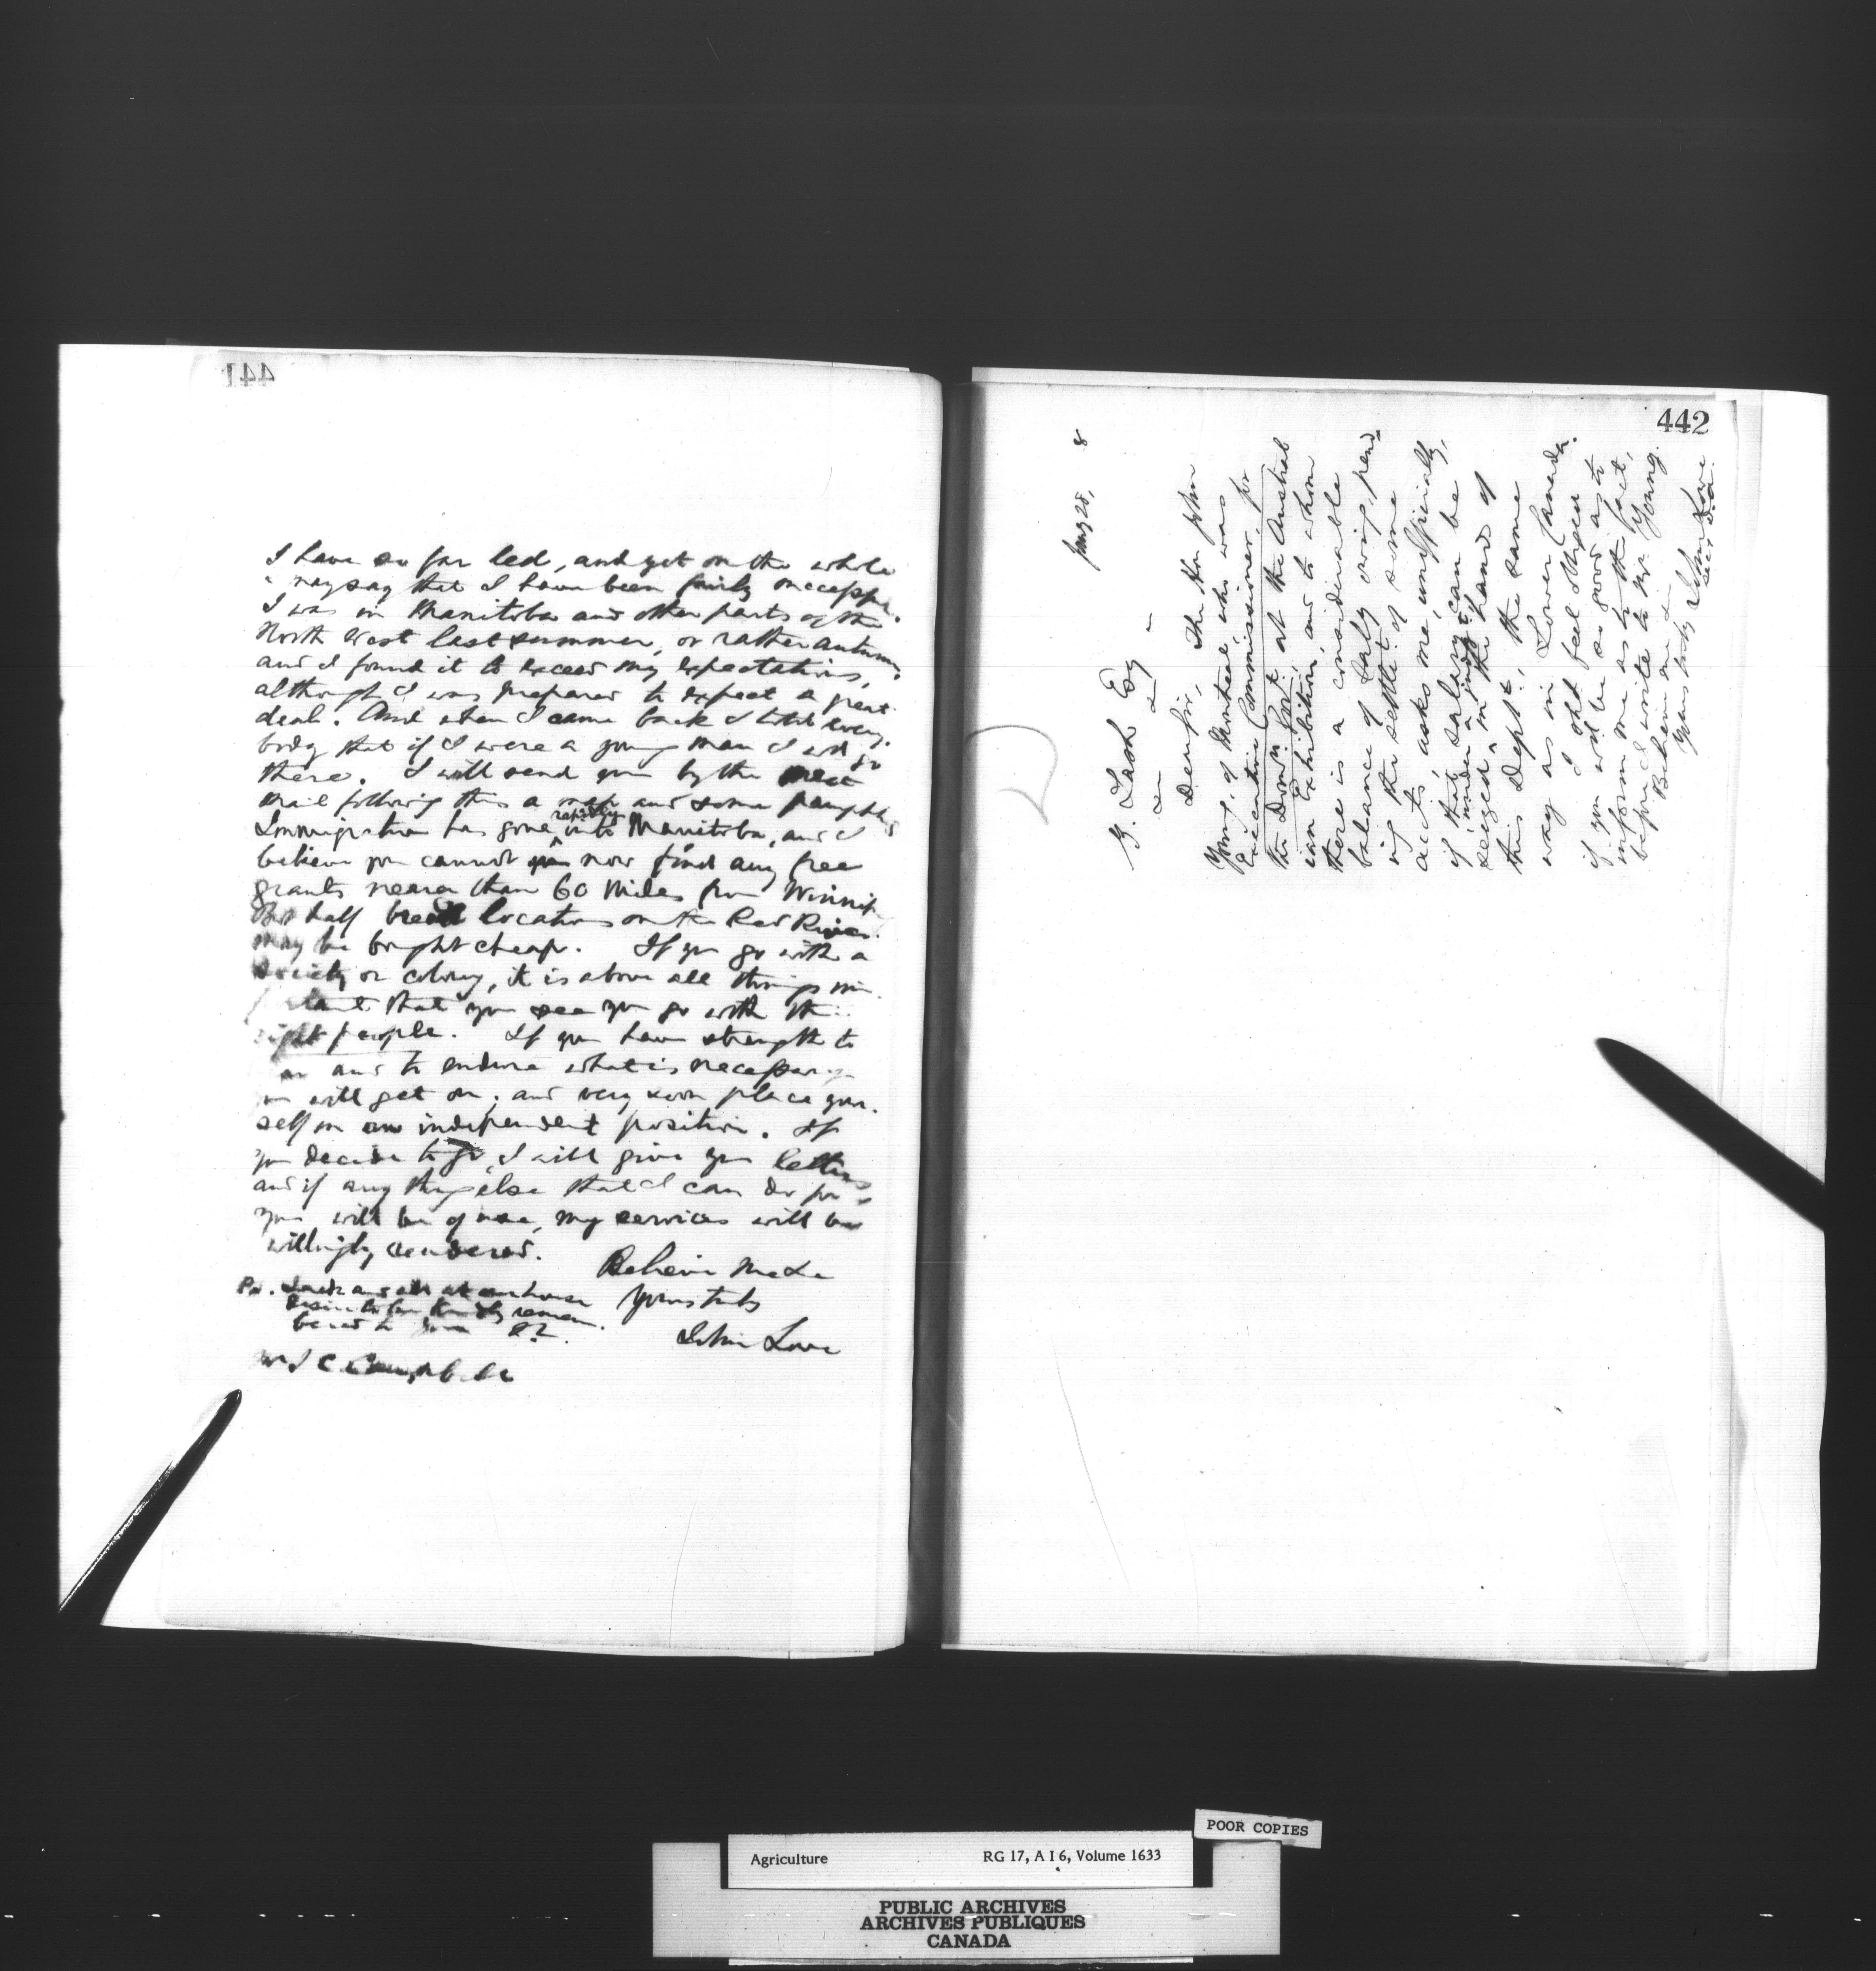 441
I have so far led, and yet on the whole
I may say that I have been fairly successful.
I was in Manitoba and other parts of the
North West last summer, or rather autumn,
and I found it to exceed my expectations,
although I was prepared to expect a great
deal. And when I came back I told every-
body that if I were a young man I wd go
there. I will send you by the next
mail following this a map and some pamphlets
Immigration has gone rapidly into Manitoba, and I
believe you cannot now find any free
grants nearer than 60 miles from Winnip
But half breed locations on the Red River
may be bought cheap. If you go with a
society or colony, it is above all things im-
portant that you see you go with the
right people. If you have strength to
and to endure what is necessary
you will get on, and very soon place your-
self in an independent position. If
you decide to go, I will give you letters
and if any thing else that I can do for
you will be of use, my services will be
willingly rendered.
Believe me to be
Yours truly
John Lowe
Ps. and all at our house
desire to be kindly remem-
bered to you
J C Campbell
442
Jany 28, 8
Z. Lash Esq
Dear Sir, The Hon John
Young, of Montreal who was
Executive Commissioner for
the Domn Govt at the Austral
ian Exhibition, and to whom
there is a considerable
balance of salary owing, pend-
ing the settlet of some
accts, asks me, unofficially,
if that salary can be
seized, under a judgt, in the hands of
this Deptt, the same
way as in Lower Canada.
I shd feel obliged
if you wd be so good as to
inform me as to the fact,
before I write to Mr Young.
Believe me
Yours truly
John Lowe
Sec D.A.
POOR COPIES
Agriculture RG 17, A I 6, Volume 1633
PUBLIC ARCHIVES
ARCHIVES PUBLIQUES
CANADA